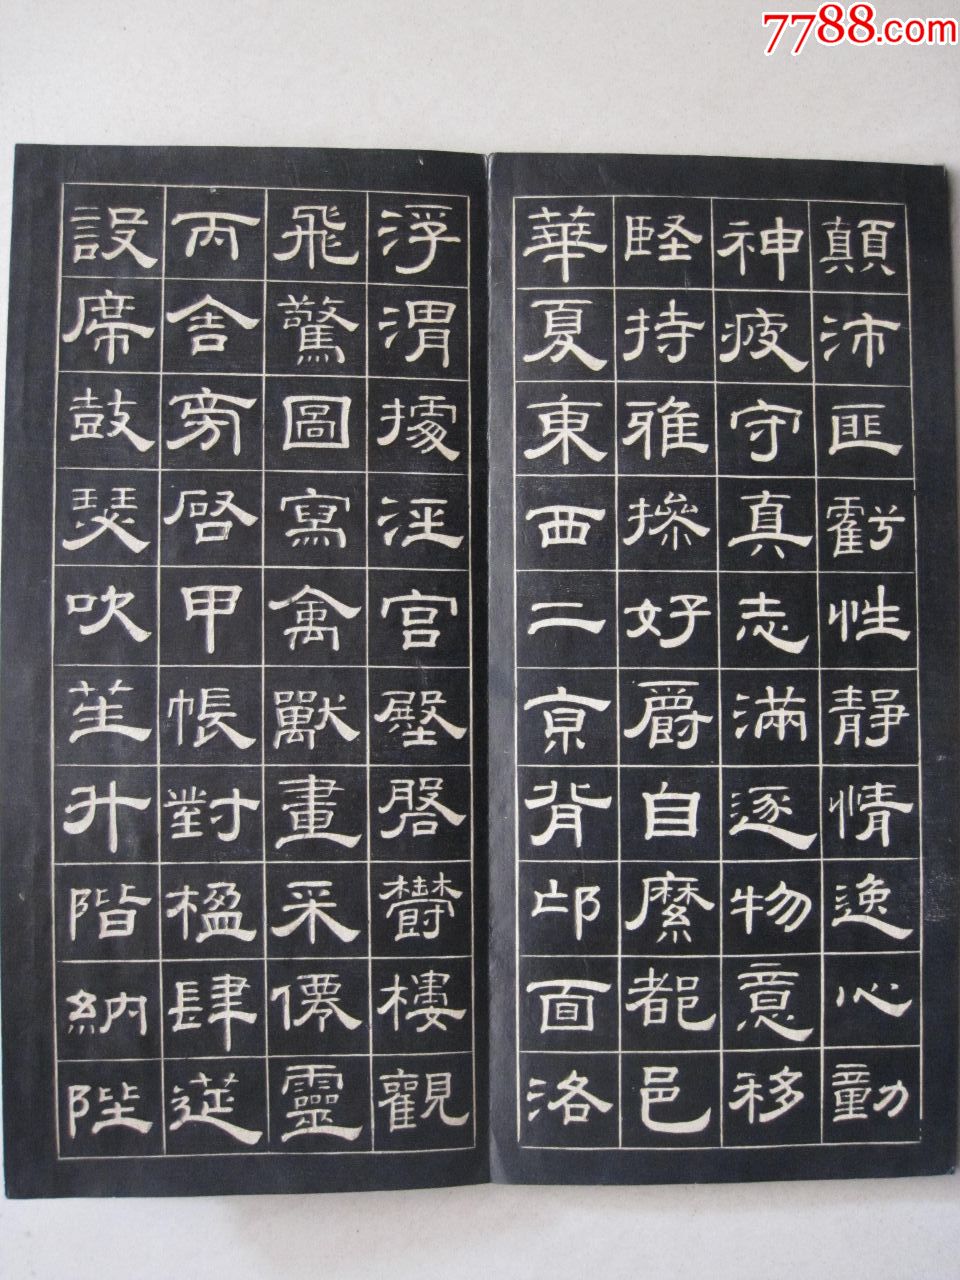 7788.com
顛沛匪虧性靜情逸心動
神疲守真志滿逐物意移
堅持雅操好爵自縻都邑
華夏東西二京背邙面洛
浮渭據涇宮殿盤鬱樓觀
飛驚圖寫禽獸畫采僊靈
丙舍旁啓甲帳對楹肆筵
設席鼓瑟吹笙升階納陛